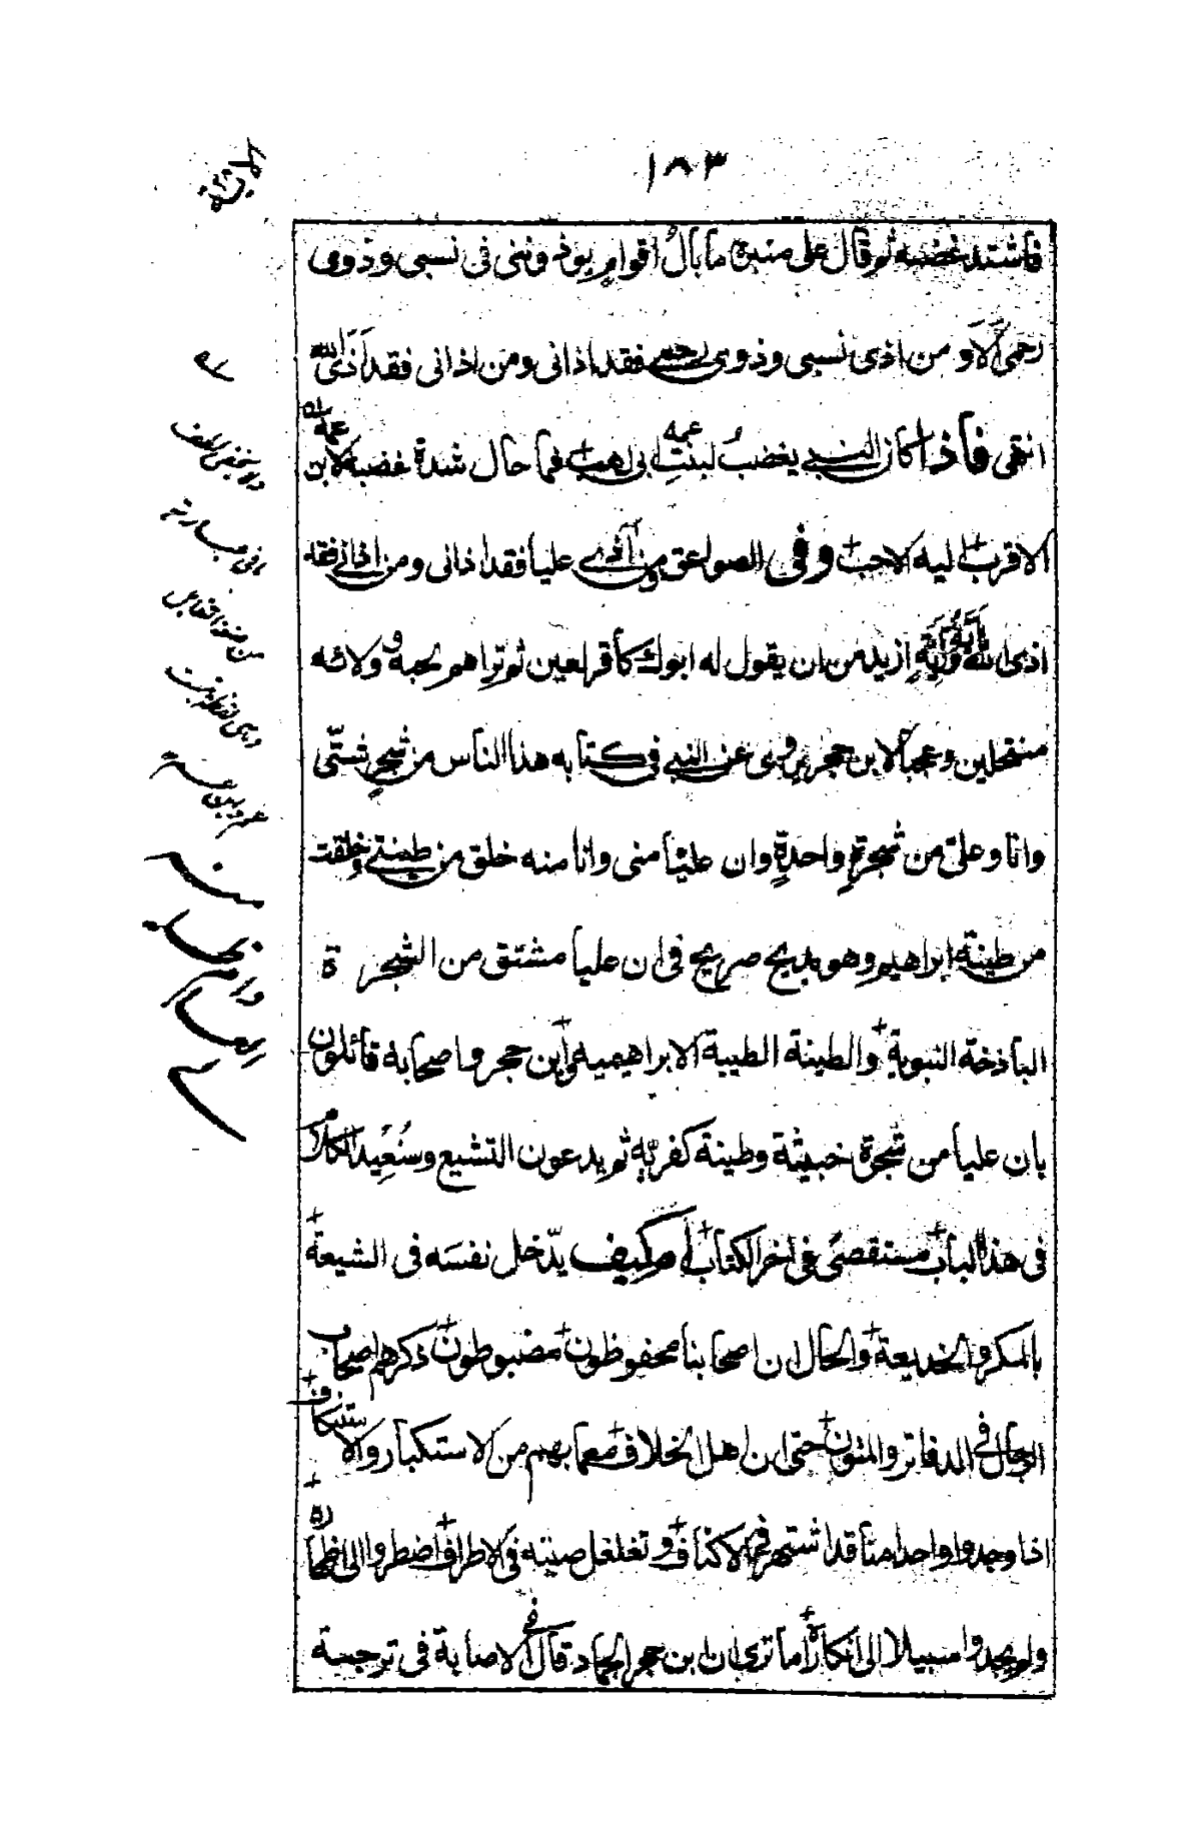 ١٨٣
فاشتد غضبه ثم قال على منبره ما بالُ اقوامٍ يوذونني في نسبي وذوى
رحمى اَلاَ ومن اذى نسبي وذوى رحمى فقد اذاني ومن اذاني فقد اَذَى اللهَ
انتهى فاذا كان النبي يغضبُ لبنتِ عمه ابى لهب فما حال شدة غضبه لابن عمه
الاقرب اليه الاحب وفى الصواعق من اذى عليا فقد اذانى ومن اذانى فقد
اذى الله وَاَيَّةُ اَذِيَّةٍ ازيد من ان يقول له ابوك كافر لعين ثم تراهم لحبه وولائه
منتحلين وعجباً لابن حجر يروى عن النبي في كتابه هذا الناس من شجرٍ شتّى
وانا وعلىّ من شجرةٍ واحدةٍ وان عليّاً منى وانا منه خلق من طينتي وخلقت
من طينة ابراهيم وهو بديح صريح في ان عليا مشتق من الشجرة
الباذخة النبوية والطينة الطيبة الابراهيمية وابن حجر واصحابه قائلون
بان عليا من شجرة خبيثة وطينة كفريّه ثم يدعون التشيع وسنُعيد الكلام
في هذا الباب مستقصىً في اخر الكتاب ام كيف يدّخل نفسَه في الشيعة
بالمكر والخديعة والحال ان اصحابنا محفوظون مضبوطون ذكرهم اصحاب
الرجال في الدفاتر والمتون حتى ان اهل الخلاف مع ما بهم من الاستكبار والاستنكاف
اذا وجدوا واحدا منا قد اشتهر في الاكناف وتغلغل صيته في الاطراف اضطروا الى اظهاره
ولم يجدوا سبيلا الى انكاره اما ترى ان ابن حجر الجهاد قال في الاصابة في ترجمة